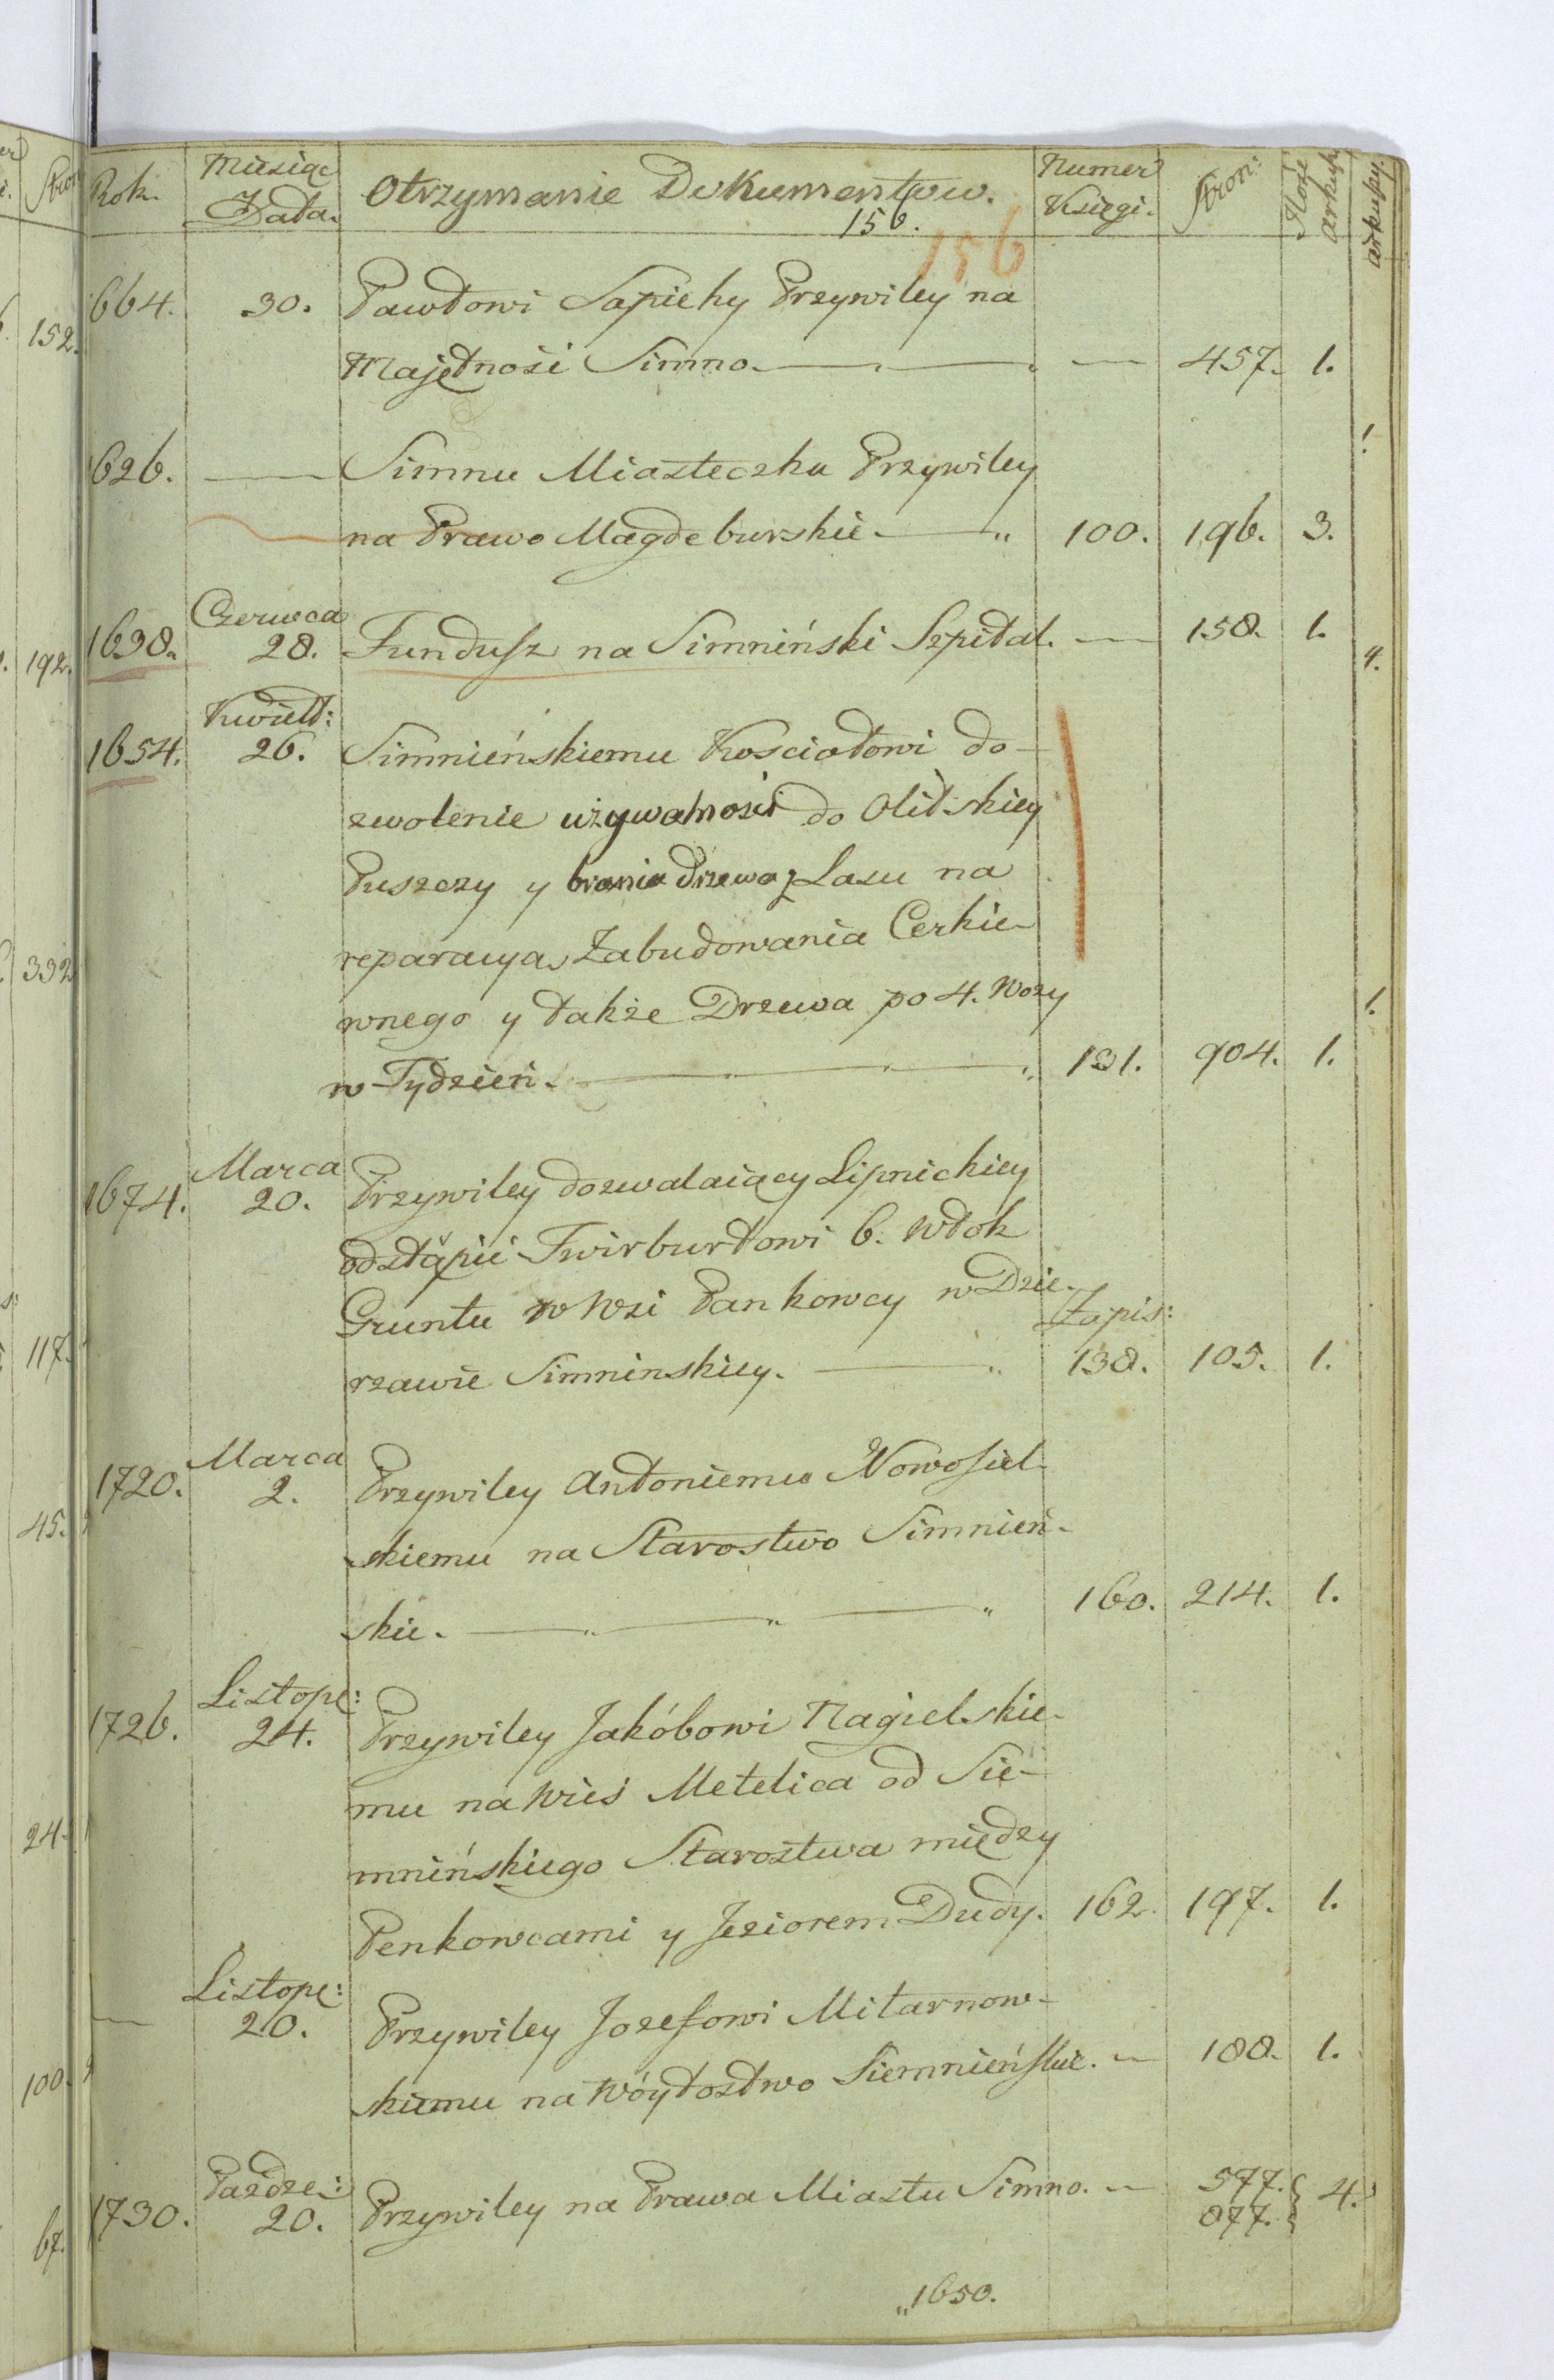 Rok. Miesiąc Data. Otrzymanie Dokumentow. Numer Księgi. Stron: Ilość arkusz
arkuszy.
156.
156
664. 30. Pawłowi Sapiehy Przywiley na
Majętność Simno. — — — 457. 1.
626. — Simnu Miasteczku Przywiley
na Prawo Magdeburskie. — " 100. 196. 3.
Czerwca
1638. 28. Fundusz na Simniński Szpital. — 158. 1.
Kwiet:
1654. 26. Simnieńskiemu Kosciołowi do-
zwolenie używalności do Olitskiey
Puszczy y brania drzewa z Lasu na
reparacya, Zabudowania Cerkie-
wnego y także Drzewa po 4. wozy
w Tydzień. — — — 131. 904. 1.
Marca
1674. 20. Przywiley dozwalaiący Lipnickiey
odstąpić Twirbutowi 6. włok
Gruntu w wsi Pankowcy w Dzie- Zapis:
rzawie Simninskiey. — " 138. 105. 1.
Marca
1720. 2. Przywiley Antoniemu Nowosiel-
skiemu na Starostwo Simnień-
skie. — " — " — " 160. 214. 1.
Listop:
1726. 24. Przywiley Jakóbowi Nagielskie-
mu na Wieś Metelica od Sie-
mnińskiego Starostwa między
Penkowcami y Jeziorem Dudy. 162. 197. 1.
Listop:
— 20. Przywiley Jozefowi Mitarnow-
skiemu na Wóytostwo Siemnieńskie. — 188. 1.
Pazdze:
1730. 20. Przywiley na Prawa Miastu Simno. — 577. 4.
877.
"1650.
152.
192.
332
117.
45.
24.
100.
67.
1.
4.
1.